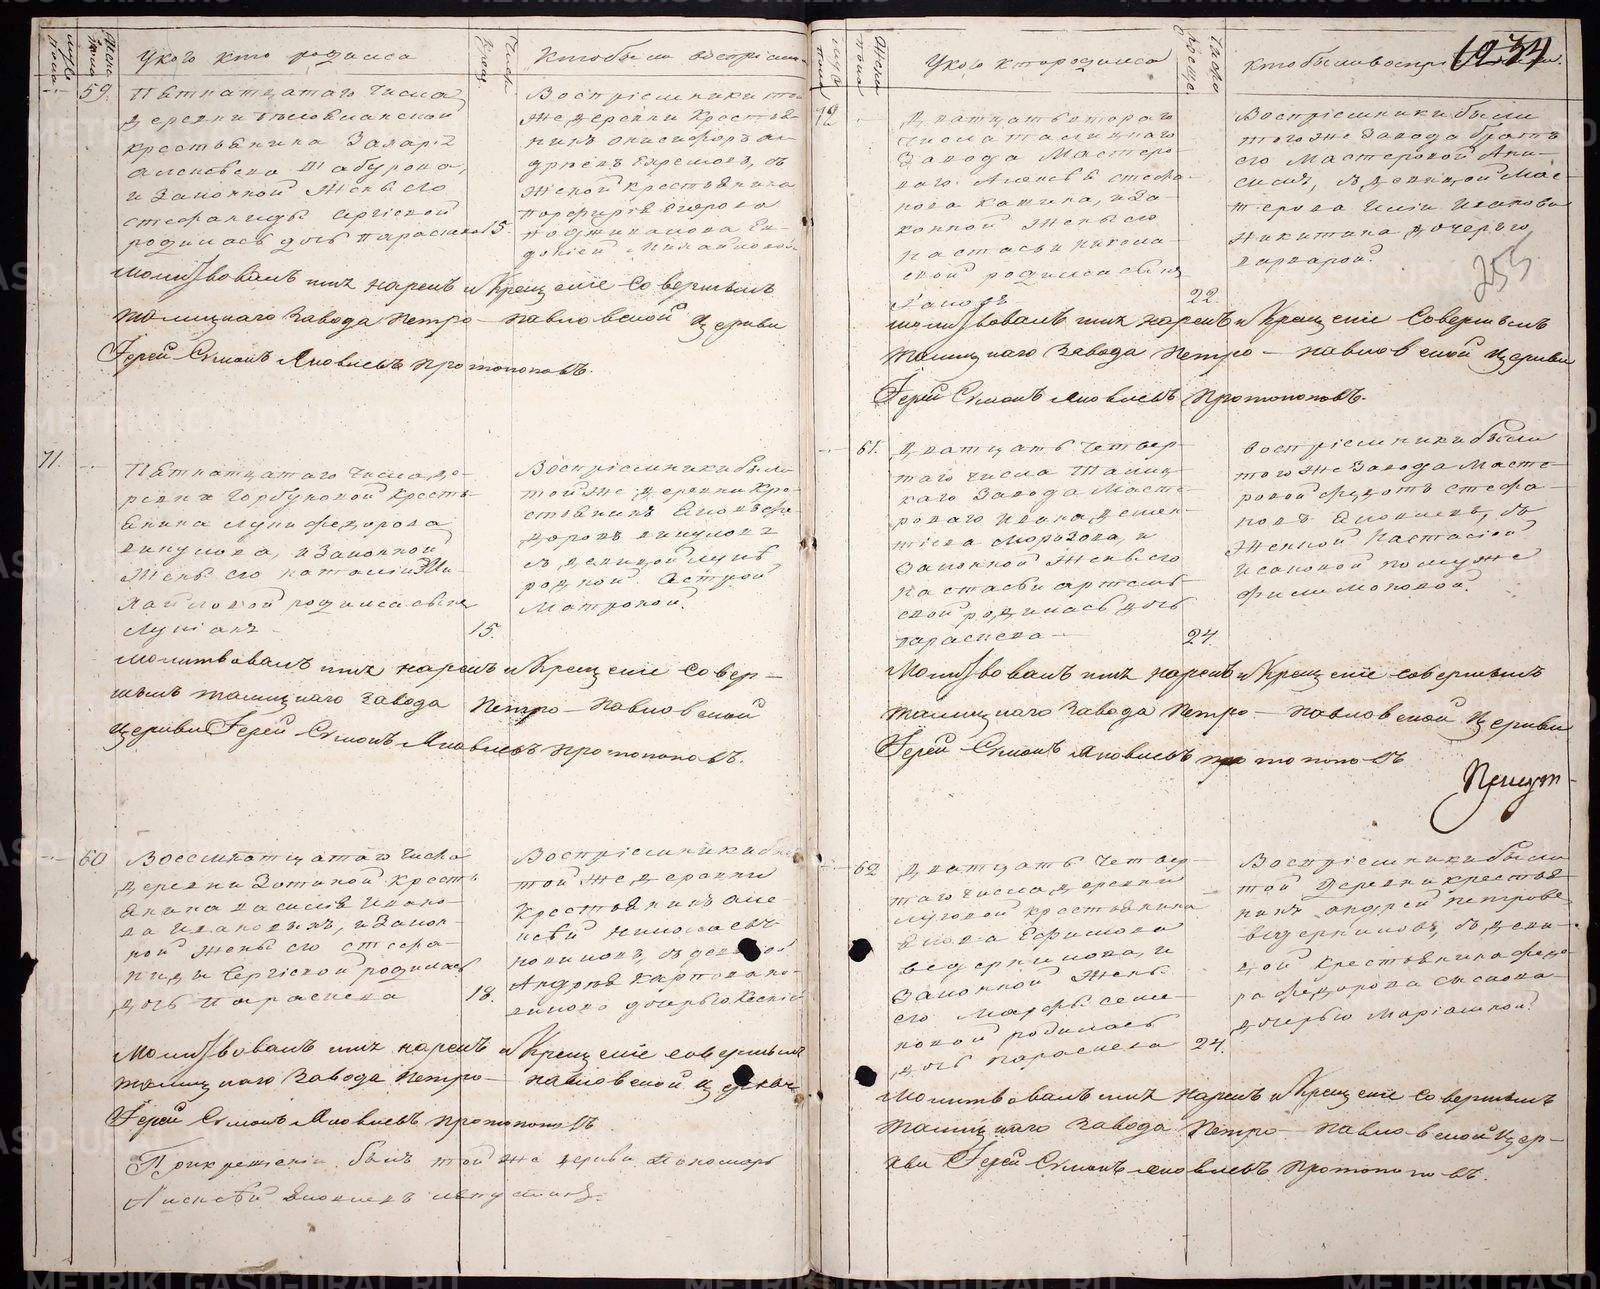 У кого кто родился
Кто были восприем
59.
Пятнатцатаго числа
деревни
крестьянина Захария
Алексеева Табурова,
и законной жены его
Стефаниды Сергиевой
родилась дочь Параскева 15.
Восприемники той
же деревни кресть
янинъ Онисифоръ Ан
дреевъ Ефремовъ, съ
женкой крестьянина
Порфирия Егорова
Ев
докией Михайловой
Молитвовалъ имя нарекъ и Крещение совершилъ
Талицкаго завода Петро-павловской церкви
Іерей Симонъ Яковлевъ Протопоповъ.
71.
Пятнатцатаго числа де
ревни Горбуновой кресть
янина Луки Федорова
Викулова, и законной
жены его Наталии Ми
хайловой родился сынъ
Лукианъ 15.
Восприемники были
той же деревни кре
стьянинъ Яковъ Фе
доровъ Викуловъ
съ девицой
родной сестрой
Матроной.
Молитвовалъ имя нарекъ и Крещение совер-
шилъ Талицкаго завода Петро-Павловской
церкви Іерей Симонъ Яковлевъ Протопоповъ.
60
Восемнатцатаго числа
деревни Зотиной кресть
янина Василия Ивано
ва Ивановыхъ, и закон
ной жены его Стефа
ниды Сергиевой родилась
дочь Параскева 18.
Восприемники бы
той же деревни
крестьянинъ Але
ксей Николаевъ
съ девицой
Андрея Карпова
дочерью Ксенией
Молитвовалъ имя нарекъ и Крещение совершилъ
Талицкаго завода Петро-павловской церкви
Іерей Симонъ Яковлевъ Протопоповъ
При крещении былъ той же церкви Пономарь
Алексей Яковлевъ
У кого кто родился
кто были воспри
1234
255
72
Дватцать втораго
числа талицкаго
завода Мастеро
ваго Алексея Стефа
нова Кокина, и за
конной жены его
Настасьи Никола
евой родился сынъ
22.
Восприемники были
того же завода братъ
его Мастеровой Ани
симъ, съ девицой Мас
терова Ильи Иванова
Никитина дочерью
Варварой.
Молитвовалъ имя нарекъ и Крещение совершилъ
Талицкаго завода Петро-павловской церкви
Іерей Симонъ Яковлевъ Протопоповъ.
61.
Дватцать четвер
таго числа Талиц
каго завода Масте
роваго Ивана Демен
тиева Морозова, и
законной жены его
Настасьи Артемь
евой родилась дочь
Параскева 24.
Восприемники были
того же завода Масте
ровой Федотъ Стефа
новъ Яковлевъ, съ
женкой Настасией
Исаковой по муже
Филимоновой.
Молитвовалъ имя нарекъ и Крещение совершилъ
Талицкаго завода Петро-павловской церкви
Іерей Симонъ Яковлевъ Протопоповъ
62
Дватцать четвер
таго числа деревни
Луговой крестьянина
Якова Ефимова
Ведерникова, и
законной жены
его Марфы Семе
новой родилась
дочь Параскева 24.
Восприемники были
той деревни крестья
нинъ Андрей Петровъ
Ведерниковъ, съ деви
цой крестьянина Федо
ра Федорова Сыскова
дочерью Мариамной.
Молитвовалъ имя нарекъ и Крещение совершилъ
Талицкаго завода Петро-павловской цер-
кви Іерей Симонъ Яковлевъ Протопоповъ.
METRIKI.GASO-URAL.RU